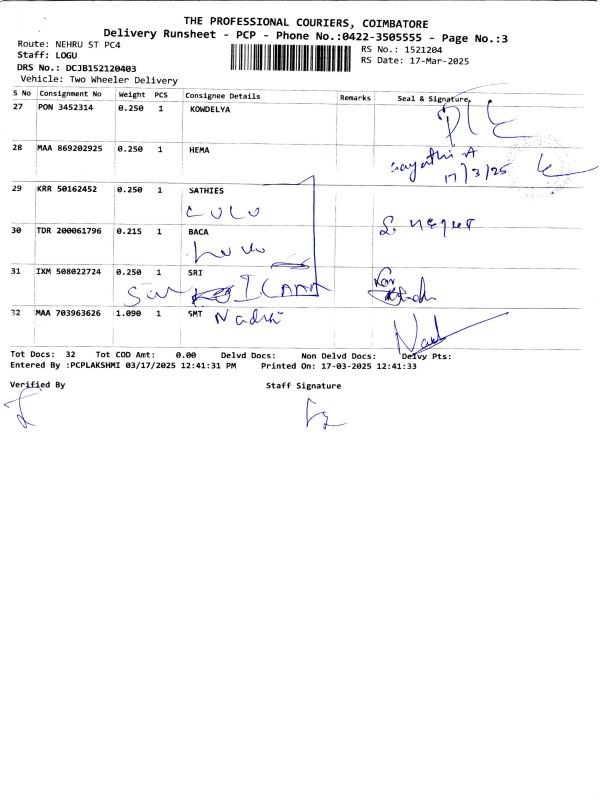 THE PROFESSIONAL COURIERS, COIMBATORE
Delivery Runsheet - PCP - Phone No.:0422-3505555 - Page No.:3
Route: NEHRU ST PC4
RS No.: 1521204
Staff: LOGU
RS Date: 17-Mar-2025
DRS No.: DCJB152120403
Vehicle: Two Wheeler Delivery
S No Consignment No Weight PCS Consignee Details Remarks Seal & Signature
27 PON 3452314 0.250 1 KOWDELYA
28 MAA 869202925 0.250 1 HEMA
17/3/25
29 KRR 50162452 0.250 1 SATHIES
30 TDR 200061796 0.215 1 BACA
31 IXM 508022724 0.250 1 SRI
32 MAA 703963626 1.090 1 SMT
Tot Docs: 32 Tot COD Amt: 0.00 Delvd Docs: Non Delvd Docs: Delvy Pts:
Entered By :PCPLAKSHMI 03/17/2025 12:41:31 PM Printed On: 17-03-2025 12:41:33
Verified By Staff Signature